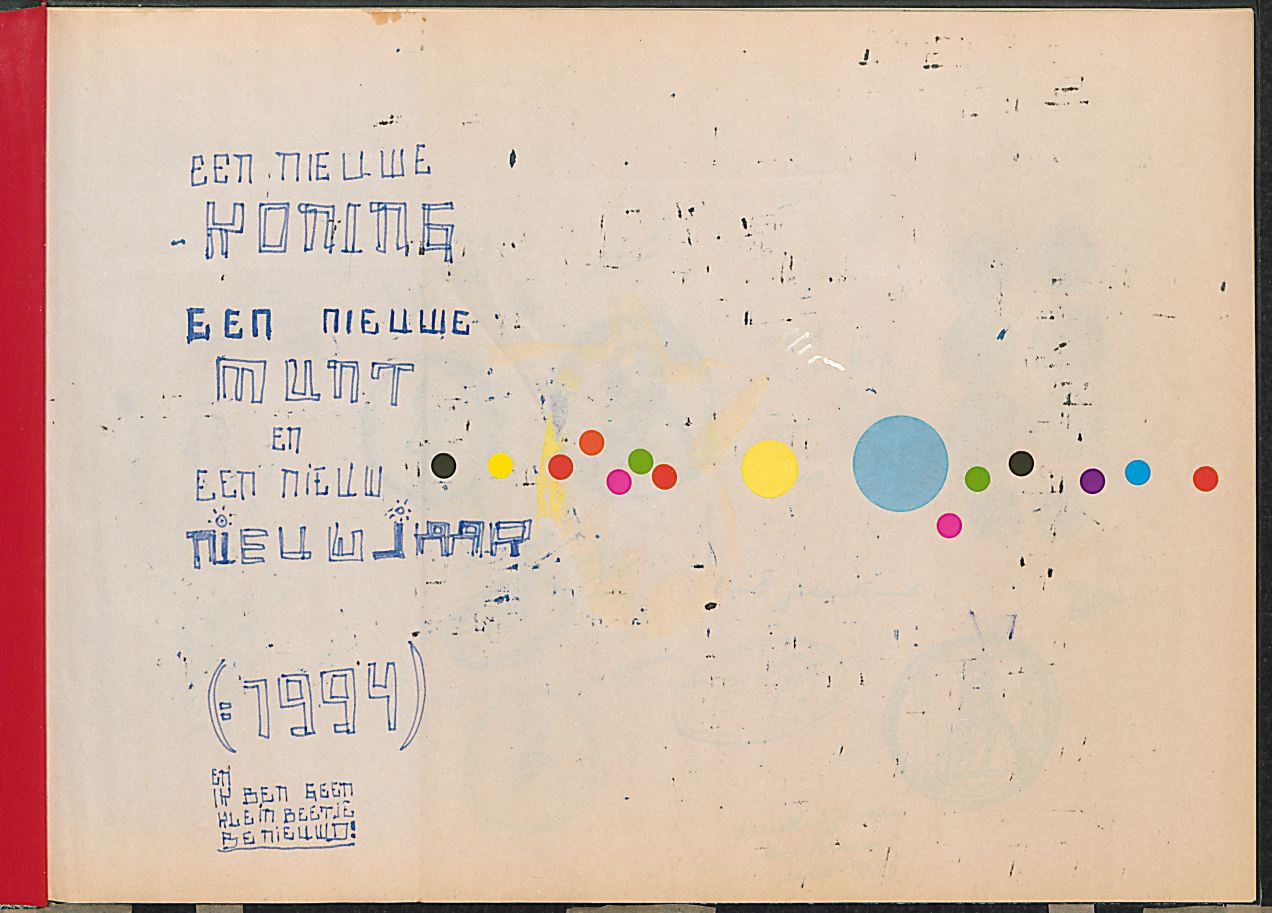 EEN NIEUWE
KONING
EEN NIEUWE
MUNT
EN
EEN NIEUW
NIEUWJAAR
(:1994)
EN
IK BEN GEEN
KLEIN BEETJE
BENIEUWD!